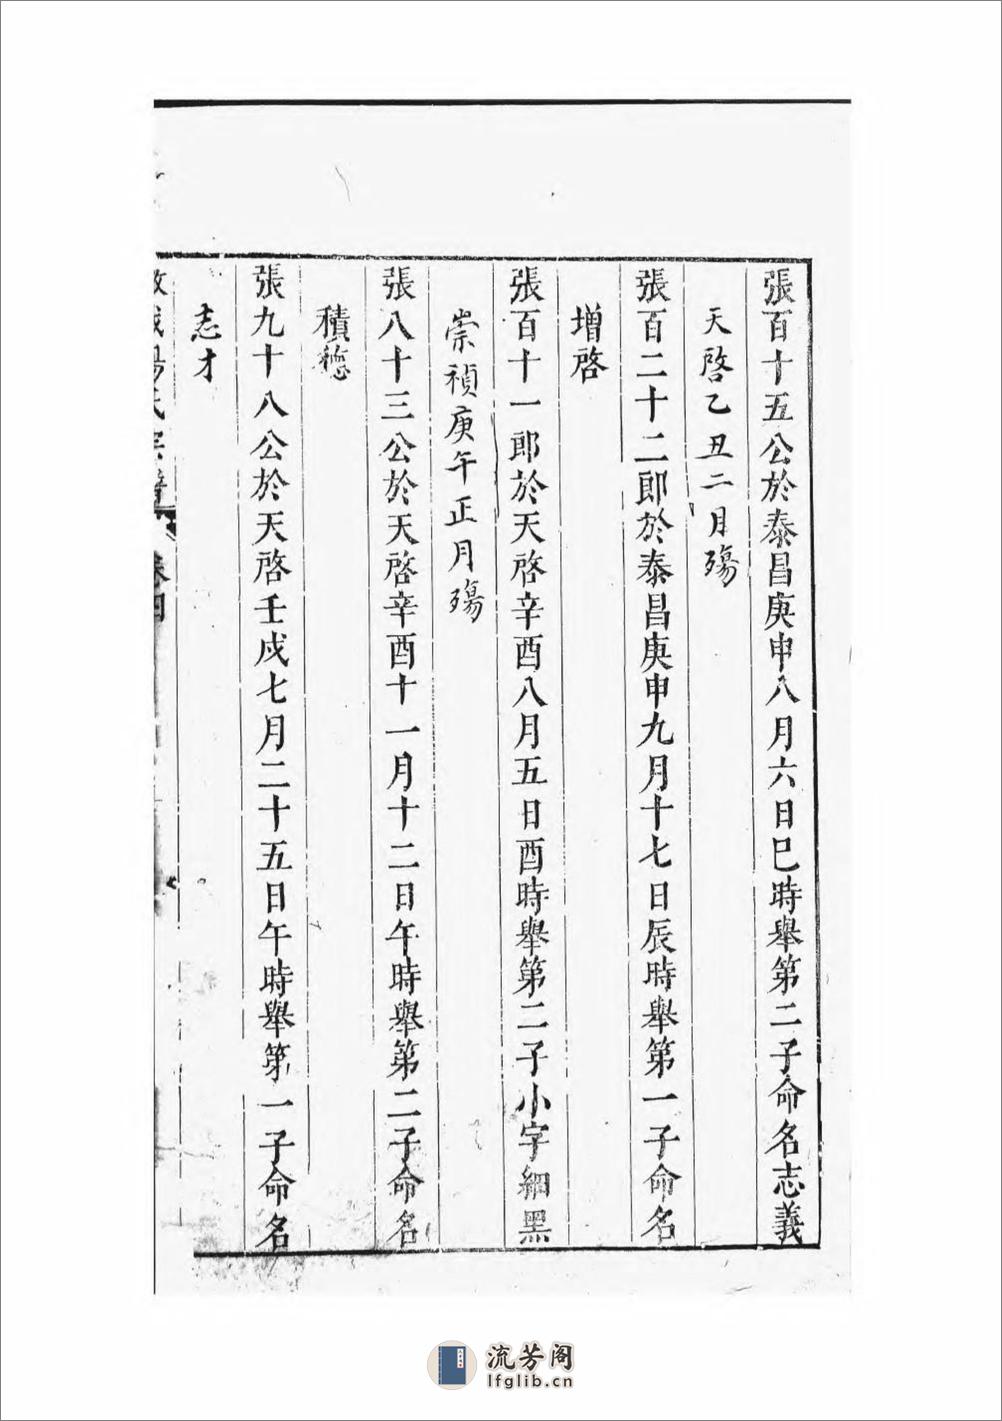 張百十五公於泰昌庚申八月六日巳時舉第二子命名志義
天啓乙丑二月殤
張百二十二郎於泰昌庚申九月十七日辰時舉第一子命名
增啓
張百十一郎於天啓辛酉八月五日酉時舉第二子小字細黑
崇禎庚午正月殤
張八十三公於天啓辛酉十一月十二日午時舉第二子命名
積德
張九十八公於天啓壬戌七月二十五日午時舉第一子命名
志才
流芳阁
lfglib.cn